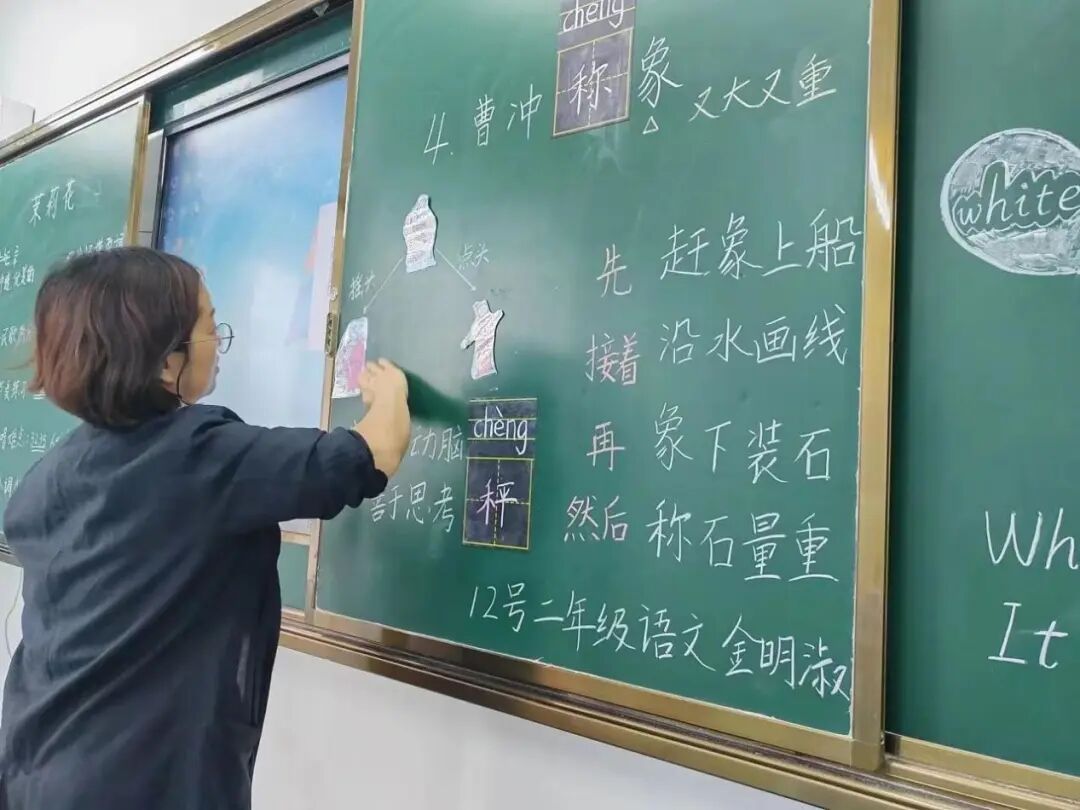 茉莉花
chēng
4. 曹冲称象 又大又重
摇头 点头
先 赶象上船
接着 沿水画线
再 象下装石
然后 称石量重
力脑
善于思考
chèng
秤
12号二年级语文金明淑
white
Wh
It